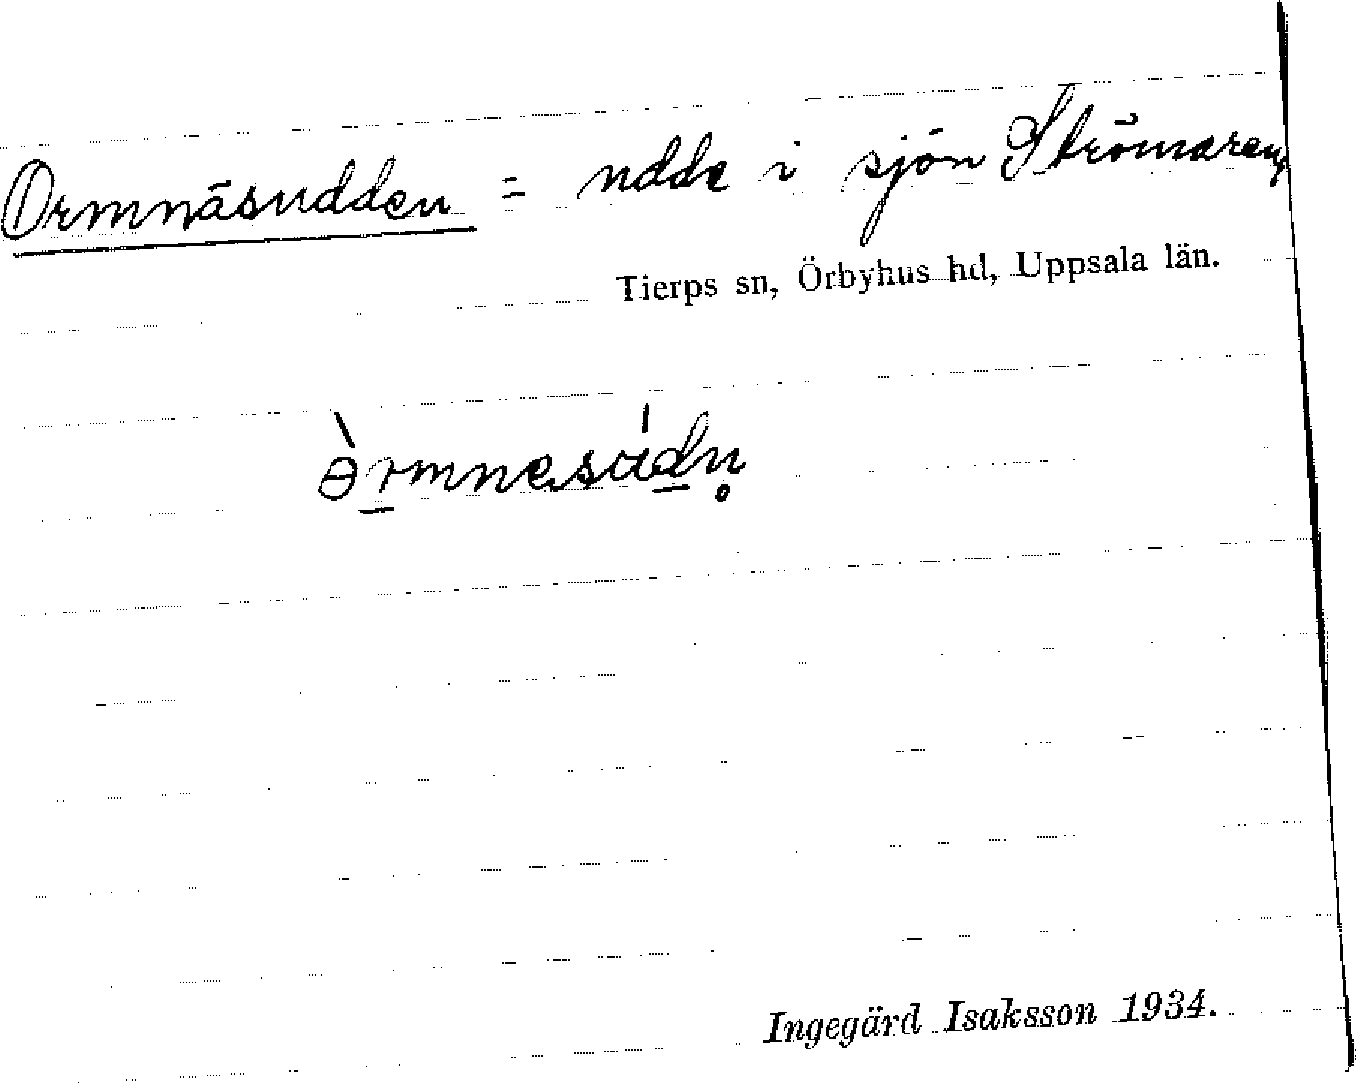 Ormnäsudden = udde i sjön Strömaren,
Tierps sn, Örbyhus hd, Uppsala län.
ɵ̀r̲mnesúd̲n̥
Ingegärd Isaksson 1934.